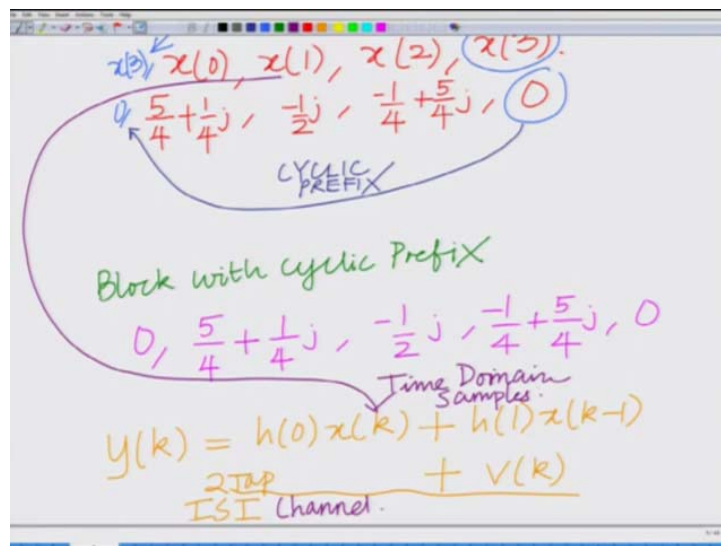 x(3), x(0), x(1), x(2), x(3).
0, 5/4 + 1/4 j, -1/2 j, -1/4 + 5/4 j, 0
CYCLIC
PREFIX
Block with cyclic Prefix
0, 5/4 + 1/4 j, -1/2 j, -1/4 + 5/4 j, 0
Time Domain
Samples.
y(k) = h(0)x(k) + h(1)x(k-1)
+ v(k)
2 Tap
ISI Channel.